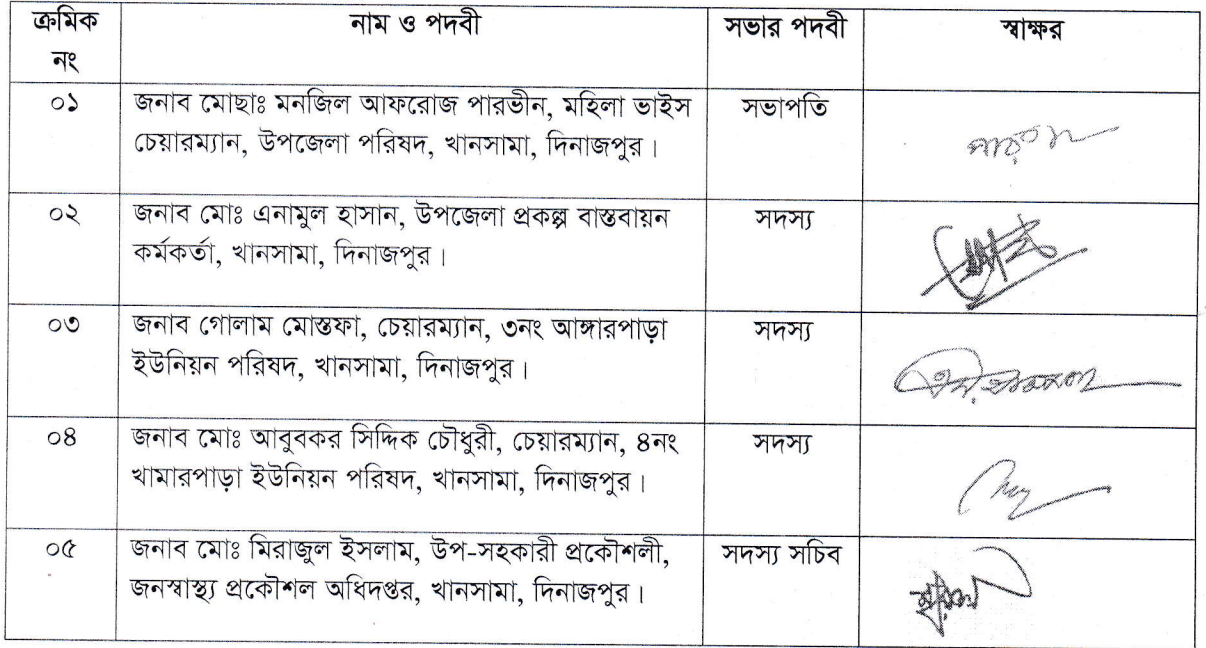 ক্রমিক নং নাম ও পদবী সভার পদবী স্বাক্ষর
০১ জনাব মোছাঃ মনজিল আফরোজ পারভীন, মহিলা ভাইস সভাপতি
চেয়ারম্যান, উপজেলা পরিষদ, খানসামা, দিনাজপুর।
০২ জনাব মোঃ এনামুল হাসান, উপজেলা প্রকল্প বাস্তবায়ন সদস্য
কর্মকর্তা, খানসামা, দিনাজপুর।
০৩ জনাব গোলাম মোস্তফা, চেয়ারম্যান, ৩নং আঙ্গারপাড়া সদস্য
ইউনিয়ন পরিষদ, খানসামা, দিনাজপুর।
০৪ জনাব মোঃ আবুবকর সিদ্দিক চৌধুরী, চেয়ারম্যান, ৪নং সদস্য
খামারপাড়া ইউনিয়ন পরিষদ, খানসামা, দিনাজপুর।
০৫ জনাব মোঃ মিরাজুল ইসলাম, উপ-সহকারী প্রকৌশলী, সদস্য সচিব
জনস্বাস্থ্য প্রকৌশল অধিদপ্তর, খানসামা, দিনাজপুর।